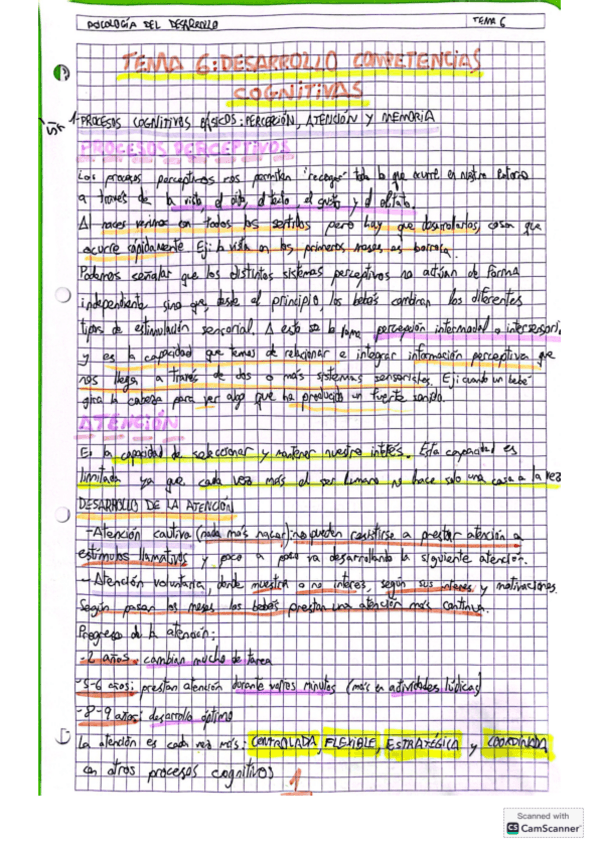 PSICOLOGÍA DEL DESARROLLO TEMA 6
TEMA 6: DESARROLLO COMPETENCIAS
COGNITIVAS
1- PROCESOS COGNITIVOS BÁSICOS: PERCEPCIÓN, ATENCIÓN Y MEMORIA
PROCESOS PERCEPTIVOS
Los procesos perceptivos nos permiten "recoger" todo lo que ocurre en nuestro entorno
a través de la vista, el oído, el tacto, el gusto y el olfato.
Al nacer venimos con todos los sentidos pero hay que desarrollarlos, cosa que
ocurre rápidamente. Ej: la vista en los primeros meses es borrosa.
Podemos señalar que los distintos sistemas perceptivos no actúan de forma
independiente sino que, desde el principio, los bebés combinan los diferentes
tipos de estimulación sensorial. A esto se le llama percepción intermodal o intersensori
y es la capacidad que tenemos de relacionar e integrar información perceptiva que
nos llega a través de dos o más sistemas sensoriales. Ej: cuando un bebé
gira la cabeza para ver algo que ha producido un fuerte sonido.
ATENCIÓN
Es la capacidad de seleccionar y mantener nuestro interés. Esta capacidad es
limitada ya que cada vez más el ser humano no hace solo una cosa a la vez
DESARROLLO DE LA ATENCIÓN
- Atención cautiva (nada más nacer): no pueden resistirse a prestar atención a
estímulos llamativos y poco a poco va desarrollando la siguiente atención.
- Atención voluntaria, donde muestra o no interés, según sus intereses y motivaciones.
Según pasan los meses los bebés prestan una atención más continua.
Progreso de la atención:
- 2 años: cambian mucho de tarea
- 5-6 años: prestan atención durante varios minutos (más en actividades lúdicas)
- 8-9 años: desarrollo óptimo
La atención es cada vez más: CONTROLADA, FLEXIBLE, ESTRATÉGICA y COORDINADA
con otros procesos cognitivos
1
Scanned with
CS CamScanner